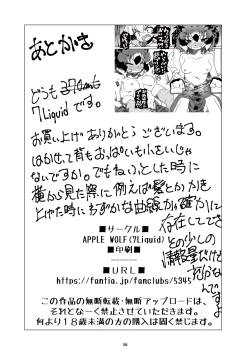 あとがき
どうも
7Liquidです。
お買い上げありがとうございます。
はかせって背もおっぱいも小さいじゃ
ないですか。でもねっ、とした時に
横から見た際に例えば髪とかかき
上げた時にわずかな曲線が確かに
存在してて
その少しの
満足なんですよ
■サークル■
APPLE WOLF(7Liquid)
■印刷■
■URL■
https://fantia.jp/fanclubs/5345
この作品の無断転載・無断アップロードは、
それとなーく禁止させていただきます。
何より18歳未満の方の購入は固く禁じます。